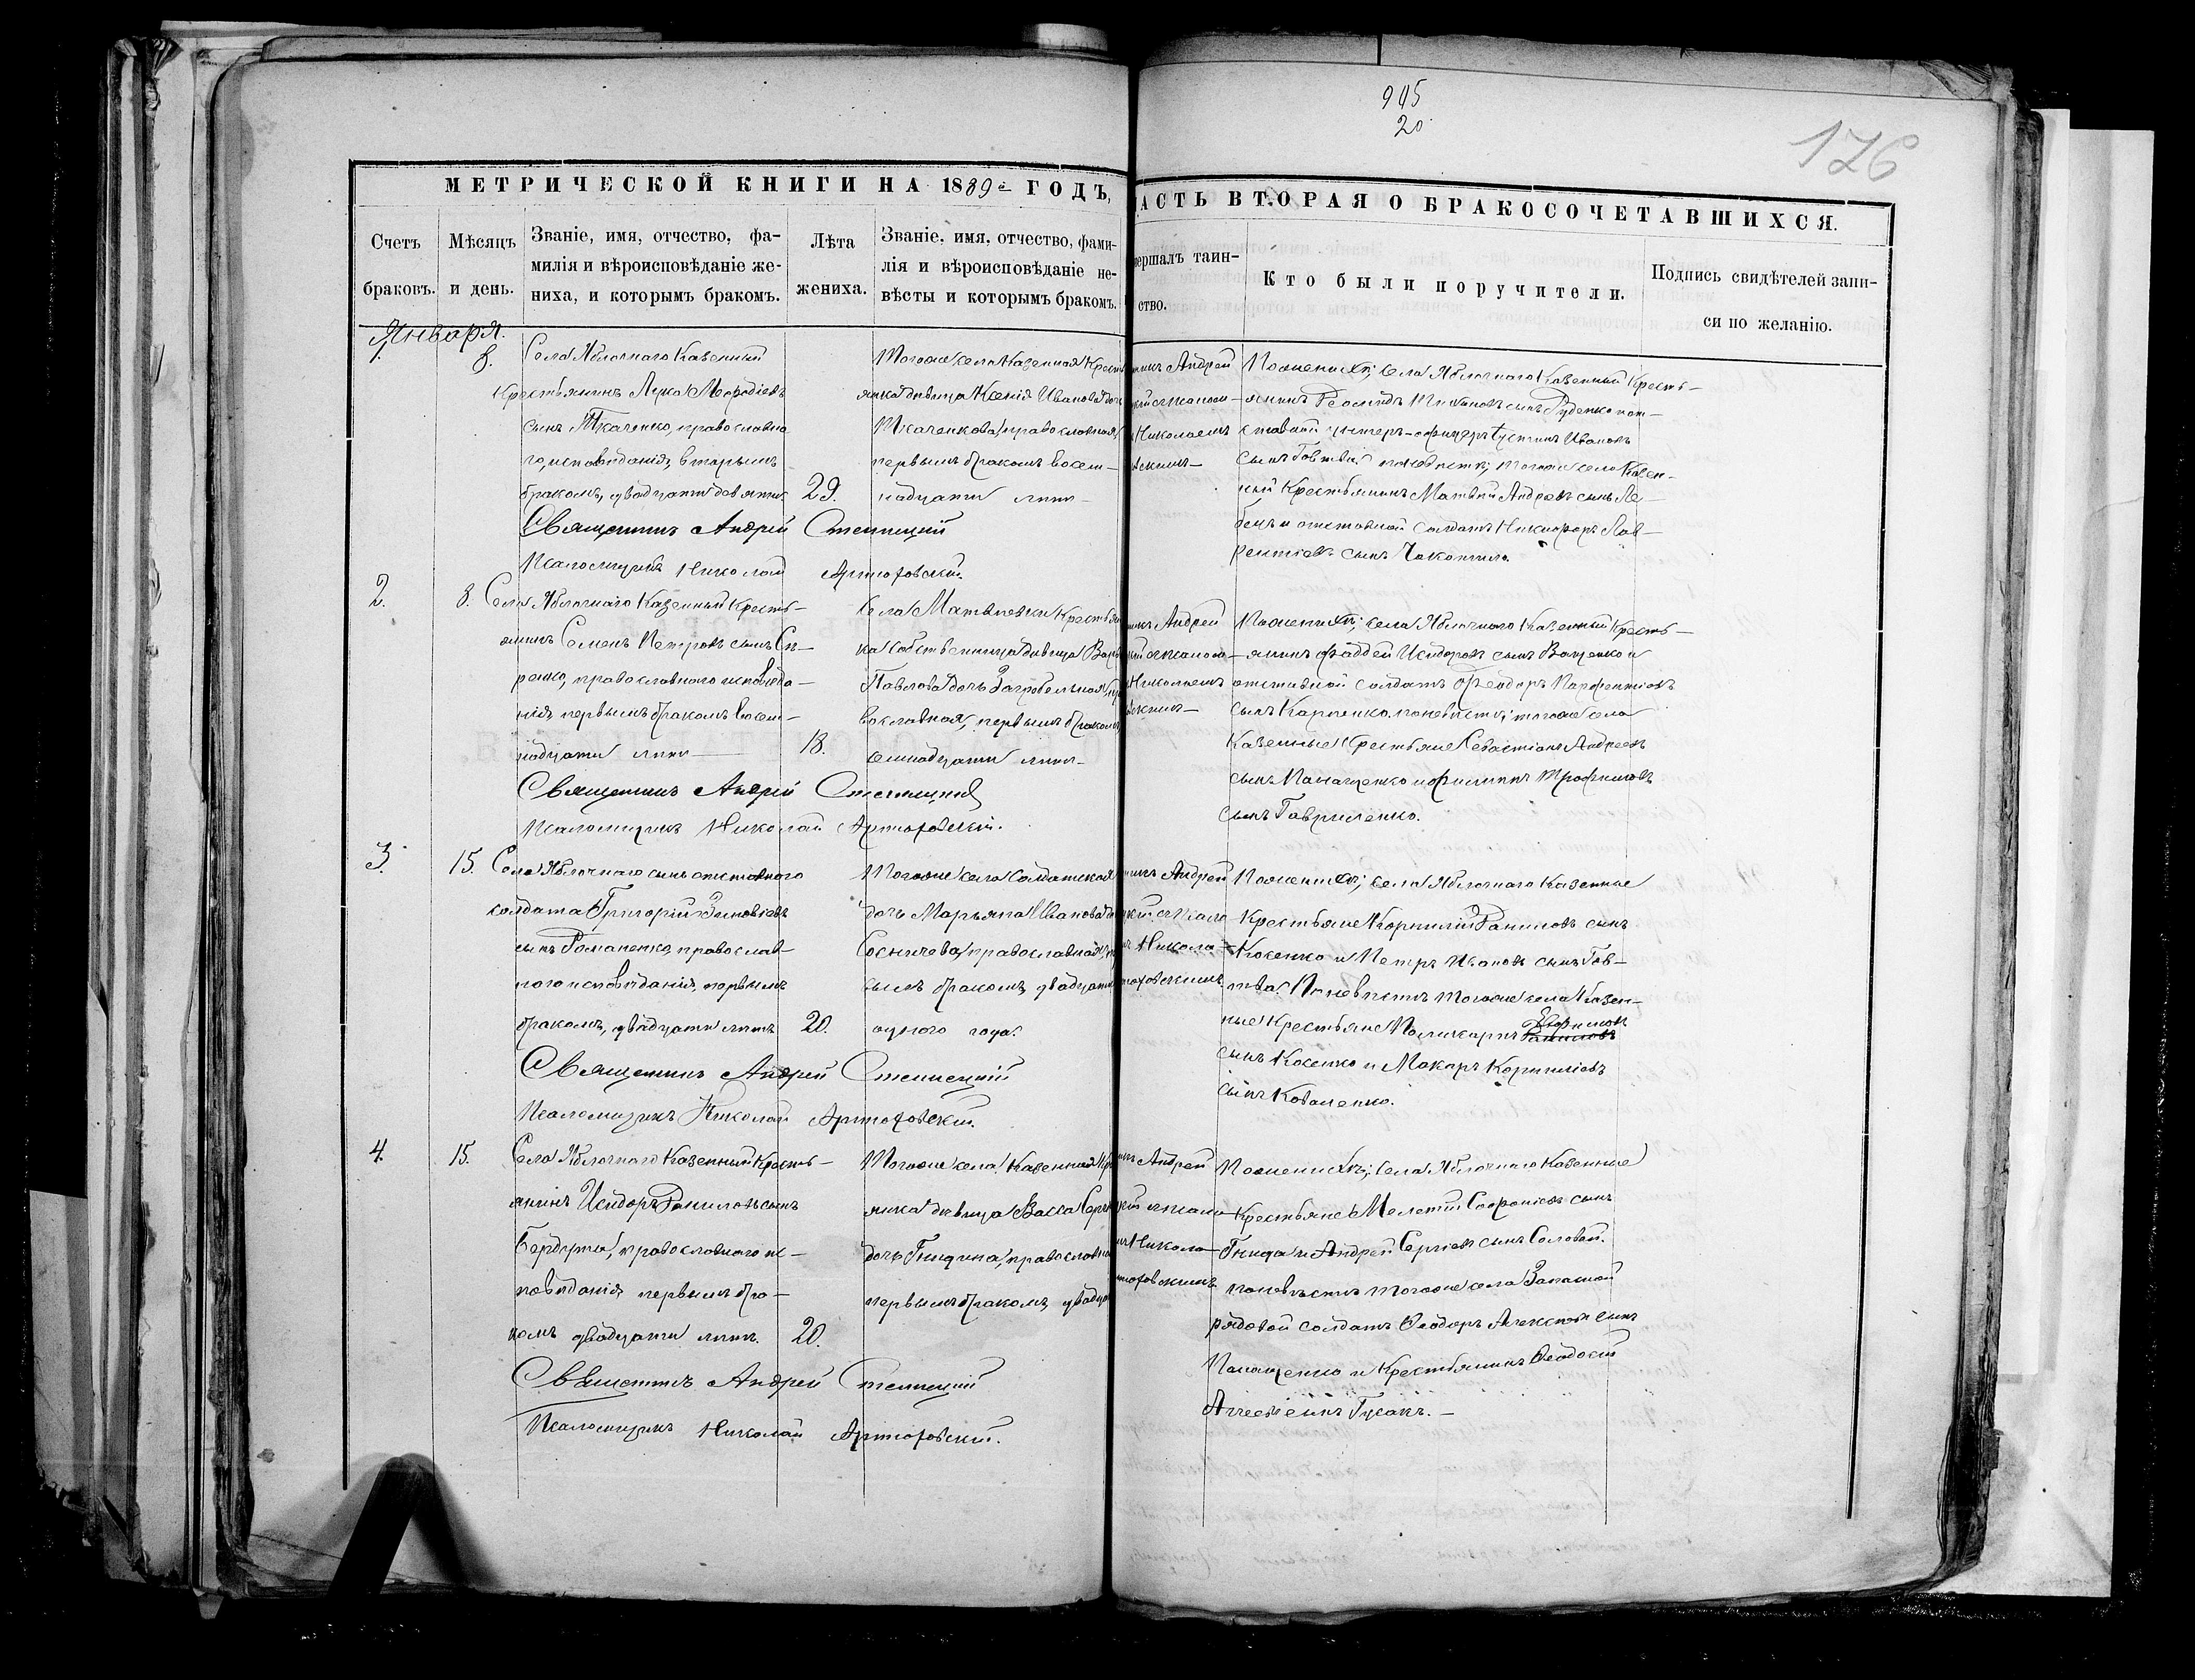 945
20
126
МЕТРИЧЕСКОЙ КНИГИ НА 1889й ГОДЪ,
АСТЬ ВТОРАЯ О БРАКОСОЧЕТАВШИХСЯ.
Счетъ браковъ.
Мѣсяцъ и день.
Званіе, имя, отчество, фа-
милія и вѣроисповѣданіе же-
ниха, и которымъ бракомъ.
Лѣта
жениха.
Званіе, имя, отчество, фами-
лія и вѣроисповѣданіе не-
вѣсты и которымъ бракомъ.
вершалъ таин-
ство.
Кто были поручители.
Подпись свидѣтелей запи-
си по желанію.
Января.
1. 8.
Села Яблочнаго Казенный
Крестьянинъ Лука Меѳодіевъ
сынъ Ткаченко, православна
го исповѣданія, вторымъ
бракомъ, двадцати девяти
29.
Тогоже села Казенная Крест
янка дѣвица Ксенія Иванова дочь
Ткаченкова, православная,
первымъ бракомъ восем-
надцати лѣтъ
Андрей
Николаемъ
По женихѣ; села Яблочнаго Казенный Кресть-
янинъ Тихоновъ сынъ Руденко и от-
ставной унтеръ-офицеръ Іустинъ Ивановъ
сынъ Говтва; по невѣстѣ; тогоже села Казен-
ный Крестьянинъ Матвѣй Андреевъ сынъ Ле-
бедь и отставной солдатъ Никифоръ Лав-
рентіевъ сынъ
Священникъ Андрей Стеллецкій
Псаломщикъ Николай Артюховскій.
2. 8.
Села Яблочнаго Казенный Кресть-
янинъ Семенъ Петровъ сынъ Си-
ренко, православнаго исповѣда-
нія, первымъ бракомъ восем-
надцати лѣтъ
18.
Села Матвѣевки Крестьян
ка собственница дѣвица Варв
Павлова дочь Загребельная, пр
вославная, первымъ бракомъ,
семнадцати лѣтъ
Андрей
Николаемъ
По женихѣ; села Яблочнаго Казенный Кресть-
янинъ Фаддей Исидоровъ сынъ Ващенко и
отставной солдатъ Ѳеодоръ Парфентіевъ
сынъ Карпенко. по невѣстѣ; тогоже села
Казенные Крестьяне Севастіанъ Андреевъ
сынъ Панащенко и Филиппъ Трофимовъ
сынъ Гавриленко.
Священникъ Андрей Стеллецкій
Псаломщикъ Николай Артюховскій.
3. 15.
Села Яблочнаго сынъ отставного
солдата Григорій Зиновіевъ
сынъ Романенко, православ-
наго исповѣданія, первымъ
бракомъ, двадцати лѣтъ
20.
Тогоже села солдатская
дочь Марьяна Иванова дочь
православная, пер
вымъ бракомъ, двадцати
одного года.
Андрей
Никола-
тюховскимъ.
По женихѣ; села Яблочнаго Казенные
Крестьяне Корнилій Даниловъ сынъ
Косенко и Петръ Ивановъ сынъ Гов-
тва. По невѣстѣ тогоже села Казен-
ные Крестьяне Поликарпъ Ефимовъ
Даниловъ
сынъ Косенко и Макаръ Корниліевъ
сынъ Коваленко.
Священникъ Андрей Стеллецкій
Псаломщикъ Николай Артюховскій.
4. 15.
Села Яблочнаго Казенный Кресть-
янинъ Исидоръ Даниловъ сынъ
Бердута, православнаго ис-
повѣданія первымъ бра-
комъ двадцати лѣтъ.
20.
Тогоже села Казенная Кр
янка дѣвица Васса
дочь Гнидина, православная
первымъ бракомъ, двадца
Андрей
Никола-
тюховскимъ
По женихѣ; села Яблочнаго Казенные
Крестьяне Мелетій Софоніевъ сынъ
Гнида и Андрей Сергіевъ сынъ Соловей.
по невѣстѣ тогоже села Запасной
рядовой солдатъ Ѳеодоръ Алексѣевъ сынъ
Панащенко и Крестьянинъ Ѳеодосій
сынъ Гусакъ.
Священникъ Андрей Стеллецкій
Псаломщикъ Николай Артюховскій.